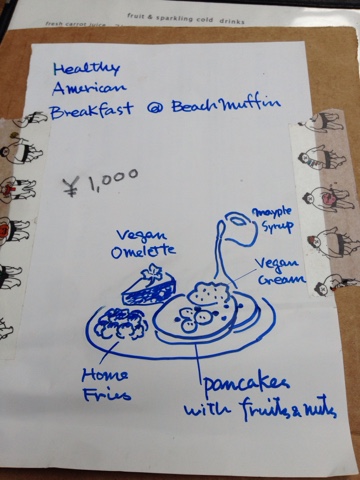 fruit & sparkling cold drinks
fresh carrot juice
Healthy
American
Breakfast @ Beach Muffin
¥1,000
mayple
Syrup
Vegan
Omelette
Vegan
Cream
Home
Fries
pancakes
with fruits & nuts